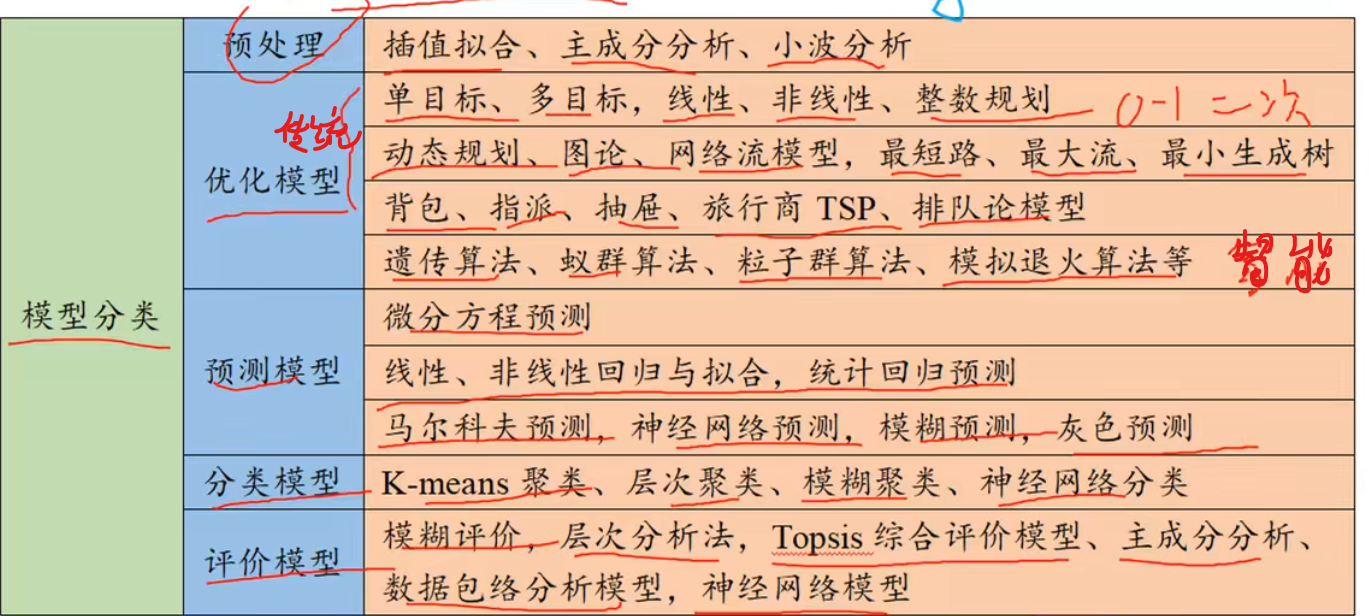 预处理
插值拟合、主成分分析、小波分析
单目标、多目标，线性、非线性、整数规划
0-1 二次
传统
优化模型
动态规划、图论、网络流模型，最短路、最大流、最小生成树
背包、指派、抽屉、旅行商 TSP、排队论模型
遗传算法、蚁群算法、粒子群算法、模拟退火算法等
智能
模型分类
预测模型
微分方程预测
线性、非线性回归与拟合，统计回归预测
马尔科夫预测，神经网络预测，模糊预测，灰色预测
分类模型
K-means 聚类、层次聚类、模糊聚类、神经网络分类
评价模型
模糊评价，层次分析法，Topsis 综合评价模型、主成分分析、
数据包络分析模型，神经网络模型